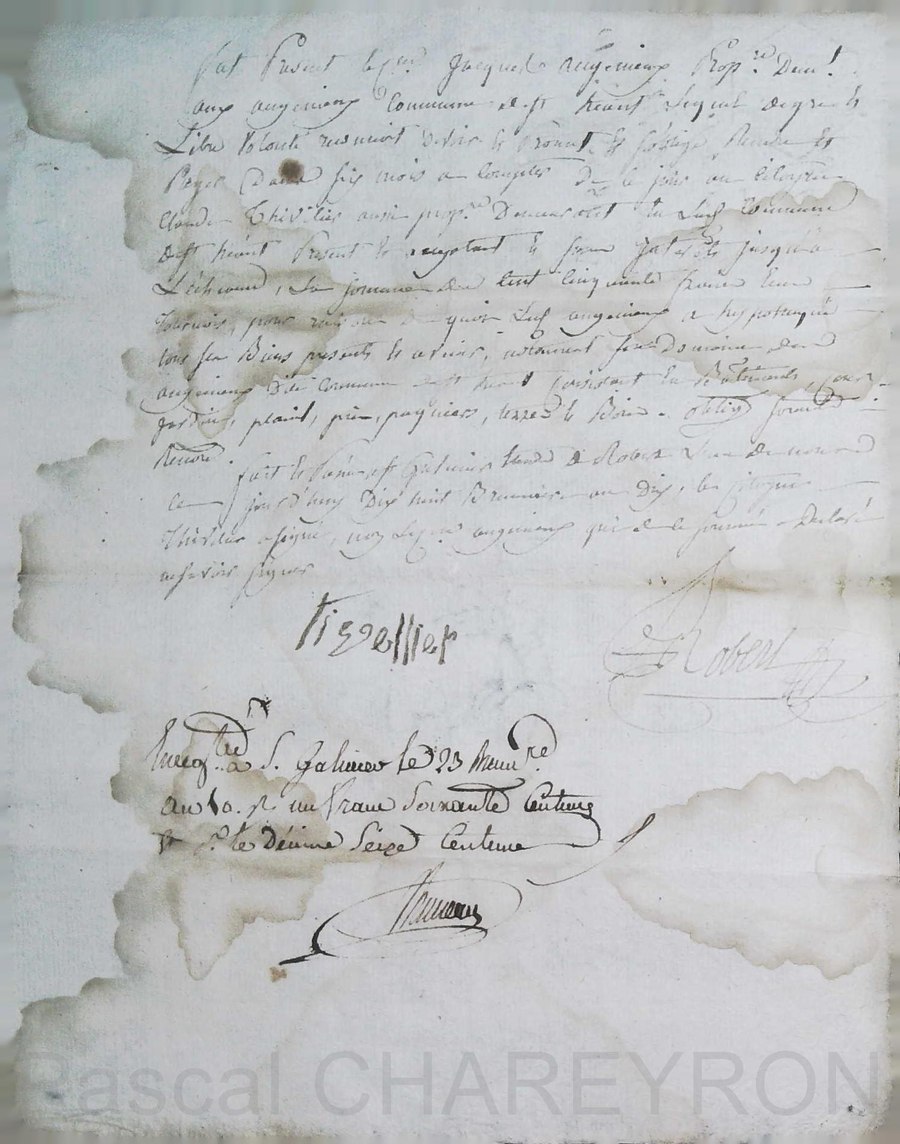 fut Présent le Cen Jacques augenieux Prop.re Dem.t
aux augenieux Commune de st héant Lequel de gré et
Libre volonté reconnoit devoir et Promet, et s'oblige Rendre et
Payer Dans six mois a Compter De ce jour au Citoyen
Claude Thivelier aussi prop.re Demeurant Commune
De st héant Présent et acceptant et sans jusqu'à
L'échéance, La somme de Cent Cinquante francs
tournois, pour raison De quoi Led augenieux a hypotequé
tous ses Biens présents et avenir, notamment son Domaine
augenieux Dite Commune de st héant Consistant en Batiments, Cour
jardins, plaint, prés, paquiers, terres et Bois. oblig
Renon
fait et Passé a st Galmier Robert
Ce jourd'huy Dix huit Brumaire an Dix, le Citoyen
a signé, non Led Cen augenieux qui de ce Déclaré
ne savoir signer
Tivellier
Robert
Enreg.tré à S. Galmier le 23 Brum.re
an 10. R. un franc Soixante Centimes
et p.r le Décime Seize Centime
Pascal CHAREYRON